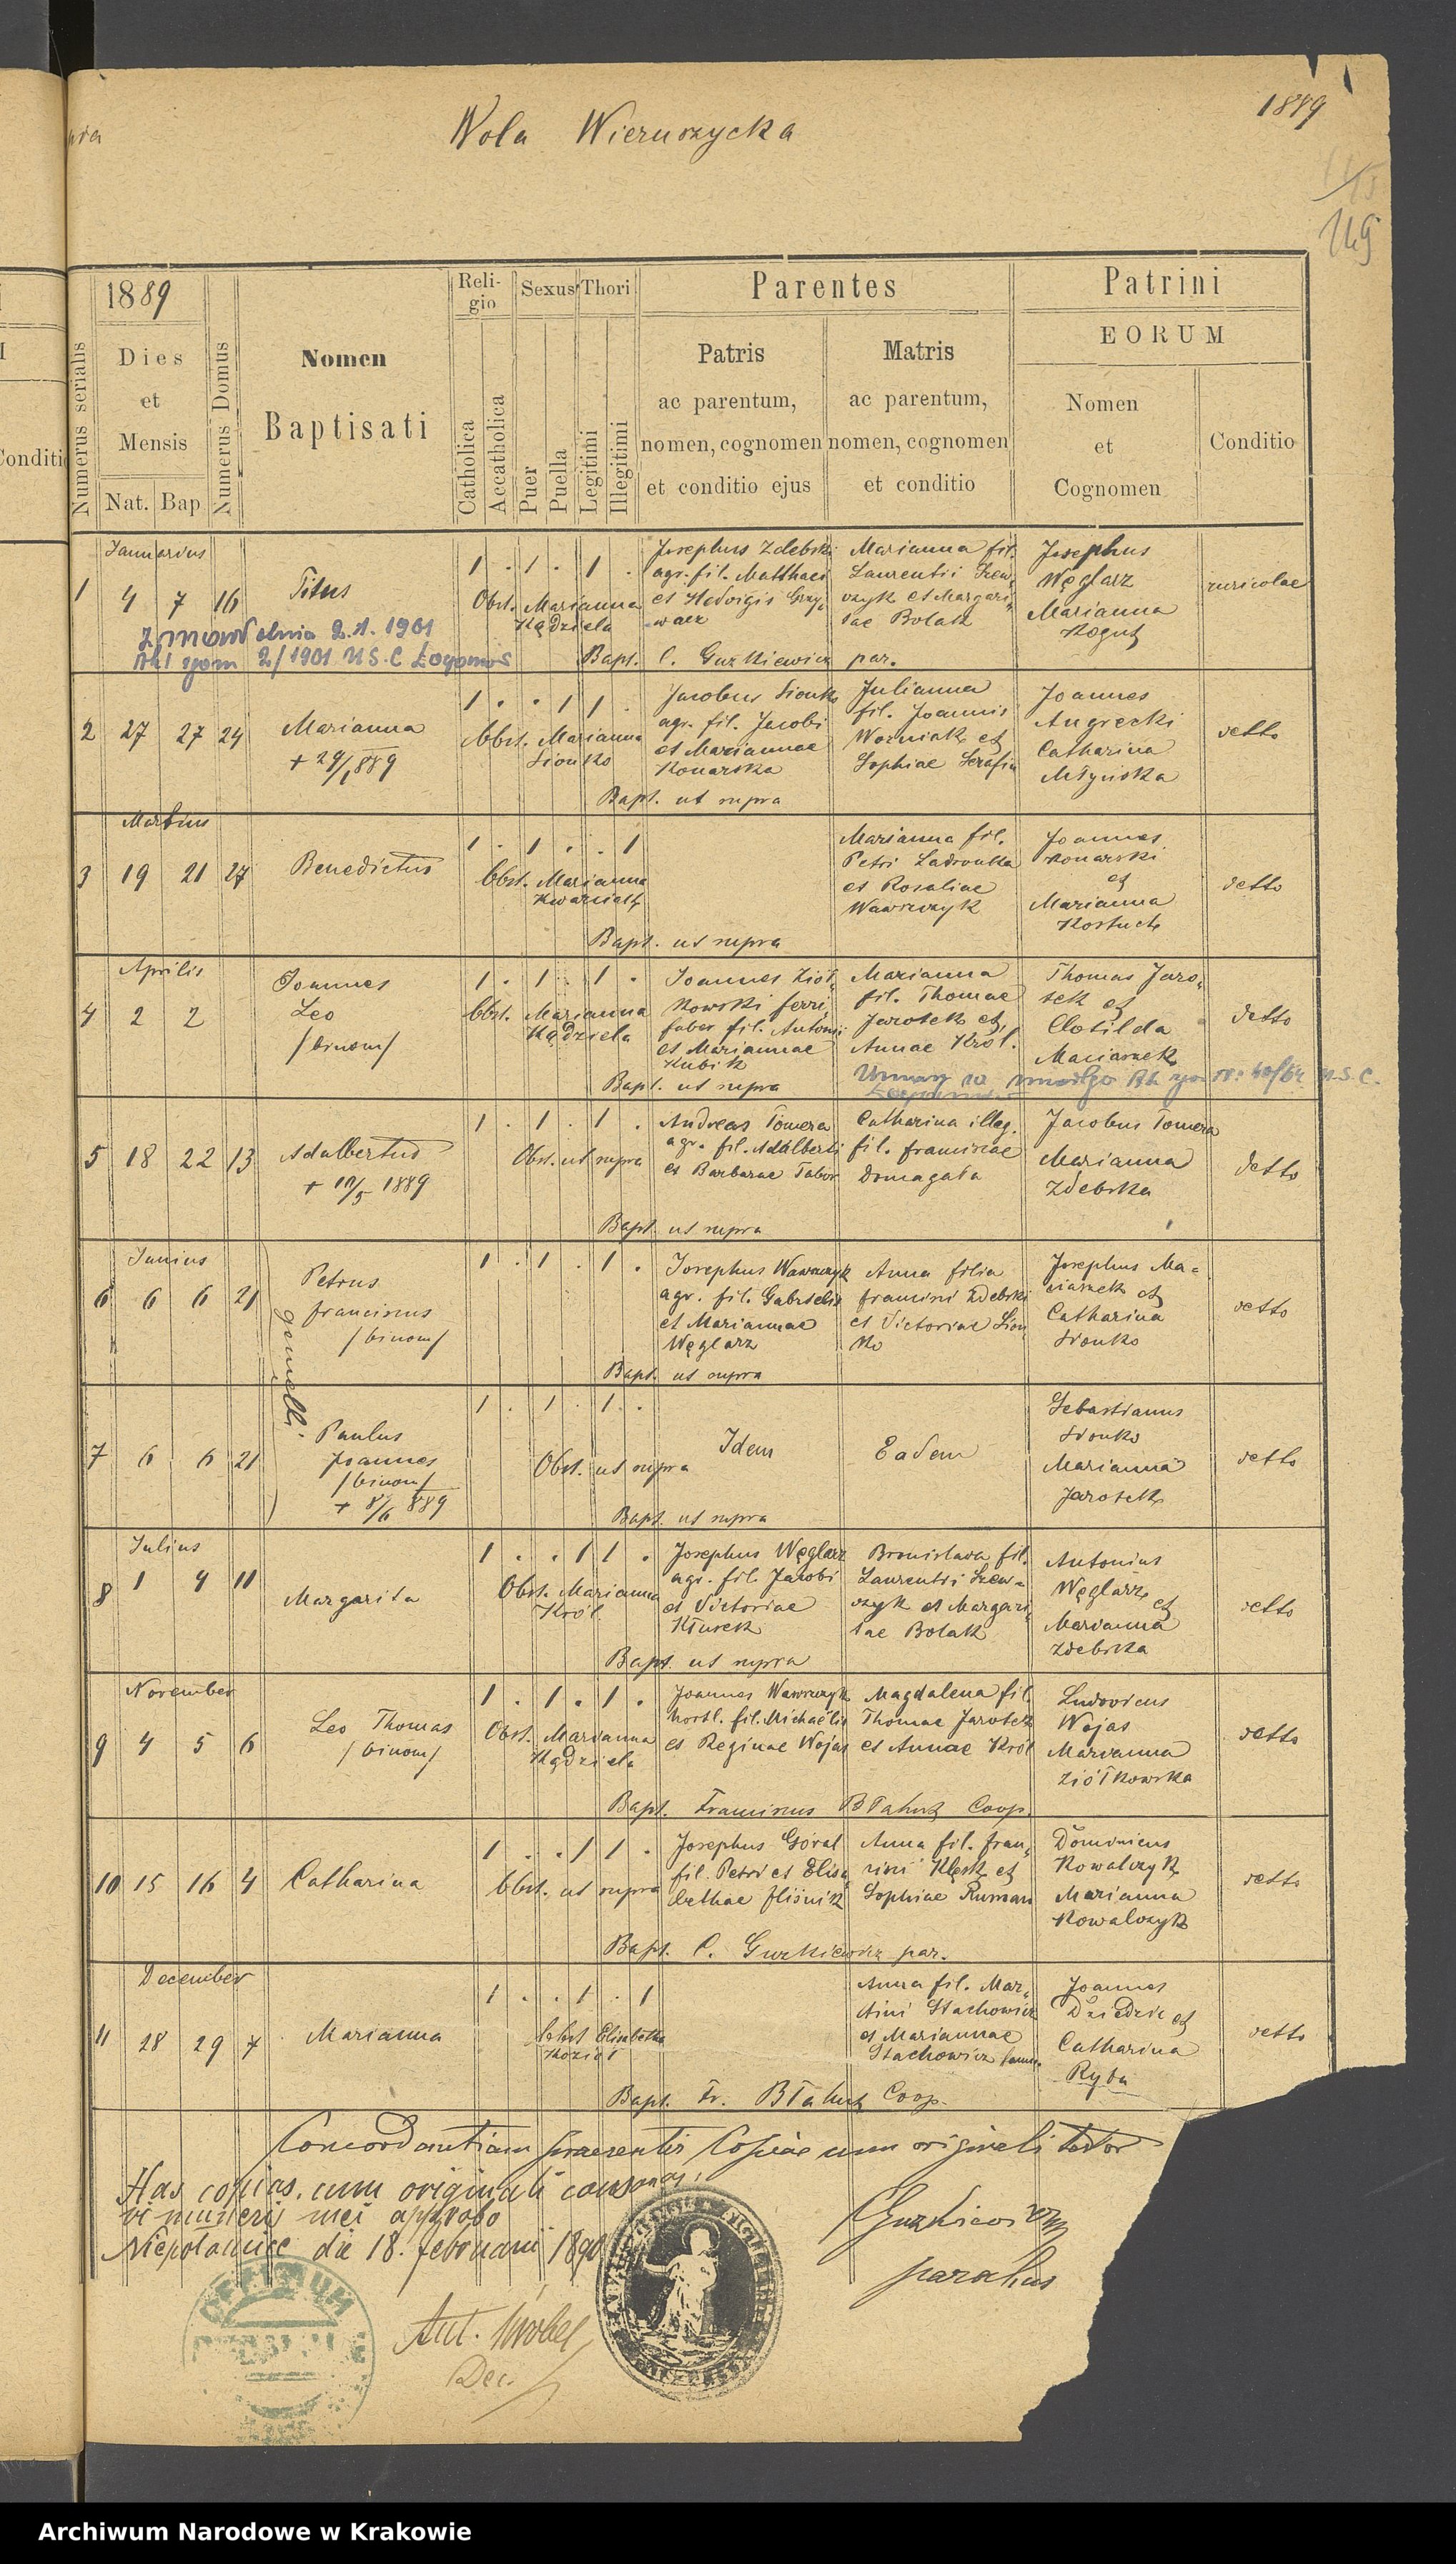 Wola Wieruszycka
1889
149
1889
Reli-
gio
Sexus
Thori
Parentes
Patrini
Numerus serialis
Dies
et
Mensis
Nat. Bap
Numerus Domus
Nomen
Baptisati
Catholica
Accatholica
Puer
Puella
Legitimi
Illegitimi
Patris
ac parentum,
nomen, cognomen
et conditio ejus
Matris
ac parentum,
nomen, cognomen
et conditio
EORUM
Nomen
et
Cognomen
Conditio
Januarius
1 4 7 16 Titus
1 . 1 . 1 .
Obst. Marianna
Kądziela
Josephus Zdebski
agr. fil. Matthaei
et Hedvigis Grzy-
wacz
Marianna fil.
Laurentii Szew-
czyk et Margari-
tae Bolak
Josephus
Węglarz
Marianna
Kogut
ruricolae
2. 1. 1961
Akt zgonu 2/1961 USC Łapanów
Bapt. C. Guzkiewicz par.
2 27 27 24 Marianna
+ 29/1 889
1 . . 1 1 .
Obst. Marianna
Sionko
Jacobus Sionko
agr. fil. Jacobi
et Mariannae
Konarska
Julianna
fil. Joannis
Woźniak et
Sophiae Serafin
Joannes
Augrecki
Catharina
Młyńska
detto
Bapt. ut supra
Martius
3 19 21 27 Benedictus
1 . 1 . . 1
Obst. Marianna
Kwarciak
Marianna fil.
Petri Zadronka
et Rosaliae
Wawrzczyk
Joannes
Konarski
et
Marianna
Kostuch
detto
Bapt. ut supra
Aprilis
4 2 2
Joannes
Leo
/binom/
1 . 1 . 1 .
Obst. Marianna
Kądziela
Joannes Ziół-
kowski ferri
faber fil. Antonii
et Mariannae
Kubik
Marianna
fil. Thomae
Jarotek et
Annae Król.
Thomas Jaro-
tek et
Clotilda
Maciaszek
detto
Bapt. ut supra
5 18 22 13 Adalbertus
+ 10/5 1889
1 . 1 . 1 .
Obst. ut supra
Andreas Tomera
agr. fil. Adalberti
et Barbarae Tabor
Catharina illeg.
fil. Franciscae
Domagała
Jacobus Tomera
Marianna
Zdebska
detto
Bapt. ut supra
Junius
6 6 6 21
Petrus
Franciscus
/binom/
gemelli
1 . 1 . 1 .
Josephus Wawrzczyk
agr. fil. Gabrielis
et Mariannae
Węglarz
Anna filia
Francisci Zdebski
et Victoriae Sion-
ko
Josephus Ma-
ciaszek et
Catharina
Sionko
detto
Bapt. ut supra
7 6 6 21
Paulus
Joannes
/binom/
+ 8/6 889
1 . 1 . 1 .
Obst. ut supra
Idem
Eadem
Sebastianus
Sionko
Marianna
Jarotek
detto
Bapt. ut supra
Julius
8 1 4 11 Margarita
1 . . 1 1 .
Obst. Marianna
Król
Josephus Węglarz
agr. fil. Jacobi
et Victoriae
Kłusek
Bronislava fil.
Laurentii Szew-
czyk et Margari-
tae Bolak
Antonius
Węglarz et
Marianna
Zdebska
detto
Bapt. ut supra
November
9 4 5 6
Leo Thomas
/binom/
1 . 1 . 1 .
Obst. Marianna
Kądziela
Joannes Wawrzczyk
hortl. fil. Michaëlis
et Reginae Wojas
Magdalena fil.
Thomae Jarotek
et Annae Król
Ludovicus
Wojas
Marianna
Ziółkowska
detto
Bapt. Franciscus Błahut Coop.
10 15 16 4 Catharina
1 . . 1 1 .
Obst. ut supra
Josephus Góral
fil. Petri et Elisa-
bethae
Anna fil. Fran-
cisci Klęsk et
Sophiae Ruman
Dominicus
Kowalczyk
Marianna
Kowalczyk
detto
Bapt. C. Guzkiewicz par.
December
11 28 29 7 Marianna
1 . . 1 . 1
Obst Elisabetha
Kozioł
Anna fil. Mar-
tini Stachowicz
et Mariannae
Stachowicz
Joannes
Dziedzic et
Catharina
Ryba
detto
Bapt. Fr. Błahut Coop.
Concordantiam praesentis Copiae cum originali testor
Has copias cum originali consonas,
vi muneris mei approbo
Niepołomice die 18. februarii 1890
Guzkiewicz
parochus
Ant. Wróbel
Dec.
Archiwum Narodowe w Krakowie